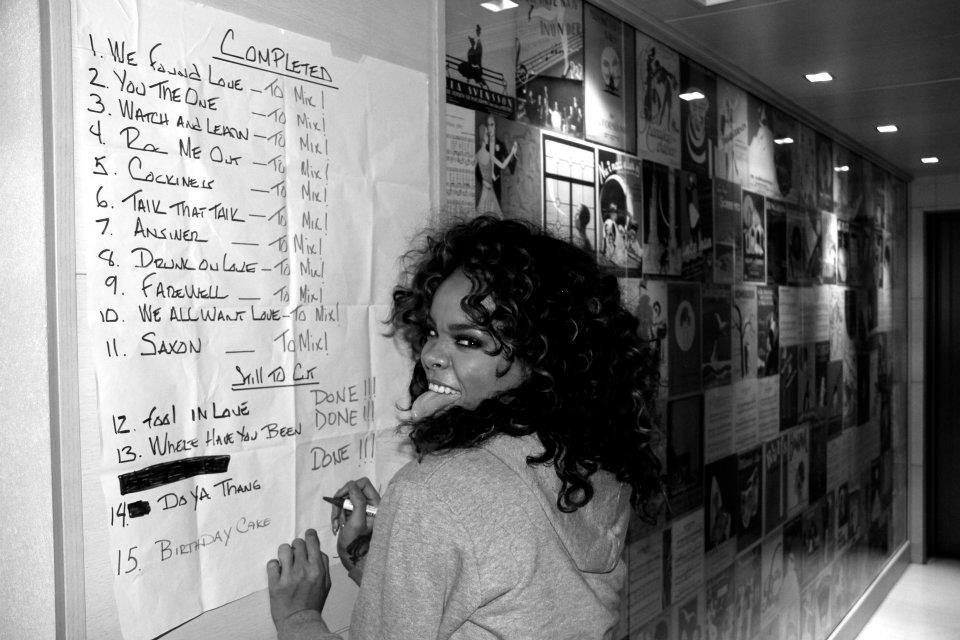 COMPLETED
1. WE found LOVE – TO Mix!
2. YOU THE ONE – TO Mix!
3. WATCH AND LEARN – TO Mix!
4. ROC ME OUT – TO Mix!
5. COCKINESS – TO Mix!
6. TALK THAT TALK – TO Mix!
7. ANSWER — To Mix!
8. DRUNK ON LOVE – TO Mix!
9. FAREWELL — To Mix!
10. WE ALL WANT LOVE – TO Mix!
11. SAXON — To Mix!
STILL TO CUT
12. fool IN LOVE DONE !!!
13. WHERE HAVE YOU BEEN DONE !!!
14. DO YA THANG DONE !!!
15. BIRTHDAY CAKE
SVENSSON